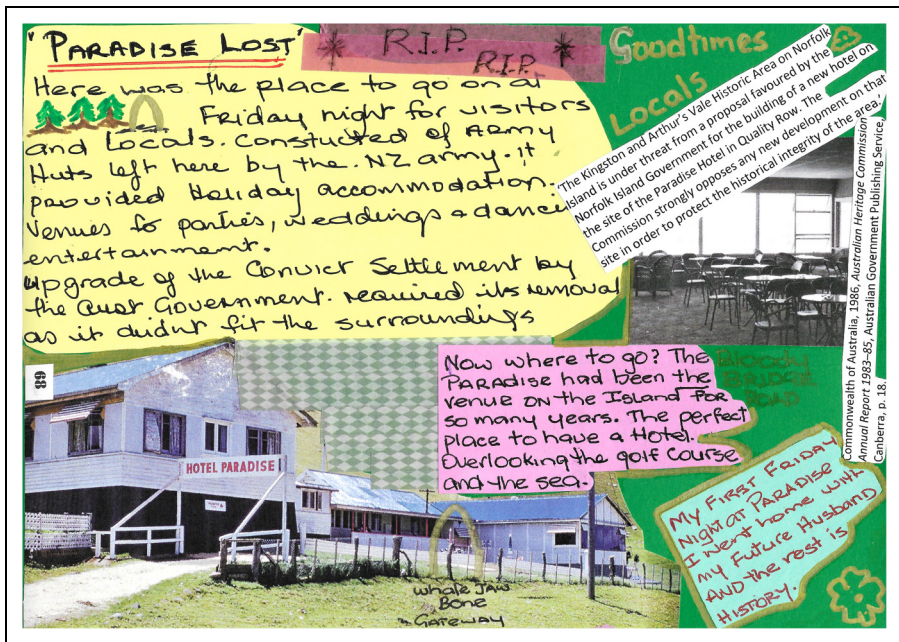 'PARADISE LOST'
R.I.P.
R.I.P.
Here was the place to go on a
Friday night for visitors
and Locals. Constructed of Army
Huts left here by the NZ army. it
provided Holiday accommodation.
Venues for parties, weddings & dance
entertainment.
upgrade of the Convict Settlement by
the Aust Government. required its removal
as it didnt fit the surroundings
Goodtimes
Locals
'The Kingston and Arthur's Vale Historic Area on Norfolk
Island is under threat from a proposal favoured by the
Norfolk Island Government for the building of a new hotel on
the site of the Paradise Hotel in Quality Row. The
Commission strongly opposes any new development on that
site in order to protect the historical integrity of the area.'
Commonwealth of Australia, 1986, Australian Heritage Commission
Annual Report 1983–85, Australian Government Publishing Service,
Canberra, p. 18.
Now where to go? The
PARADISE had been the
venue ON the Island FOR
so many years. The perfect
place to have a Hotel.
Overlooking the golf course
and the sea.
Bloody
BRIDGE
ROAD
My FIRST FRIDAY
Night AT PARADISE
I went home with
my Future Husband
AND the rest is
HISTORY.
89
HOTEL PARADISE
whale JAW
BONE
GATEWAY